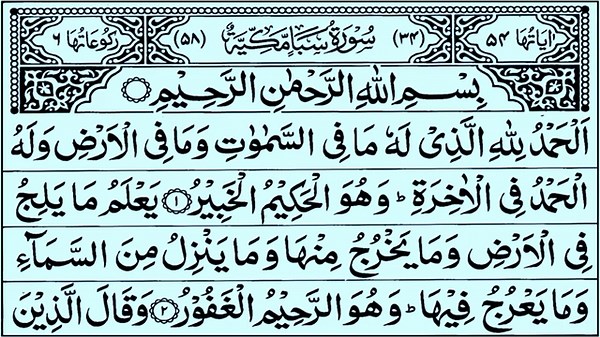 اٰیَاتُهَا ۵۴ (۳۴) سُوْرَةُ سَبَاٍ مَكِّیَّةٌ (۵۸) رُكُوْعَاتُهَا ۶
بِسْمِ اللّٰهِ الرَّحْمٰنِ الرَّحِیْمِ
اَلْحَمْدُ لِلّٰهِ الَّذِیْ لَهٗ مَا فِی السَّمٰوٰتِ وَمَا فِی الْاَرْضِ وَلَهُ
الْحَمْدُ فِی الْاٰخِرَةِ ؕ وَهُوَ الْحَكِیْمُ الْخَبِیْرُ ۝۱ یَعْلَمُ مَا یَلِجُ
فِی الْاَرْضِ وَمَا یَخْرُجُ مِنْهَا وَمَا یَنْزِلُ مِنَ السَّمَآءِ
وَمَا یَعْرُجُ فِیْهَا ؕ وَهُوَ الرَّحِیْمُ الْغَفُوْرُ ۝۲ وَقَالَ الَّذِیْنَ